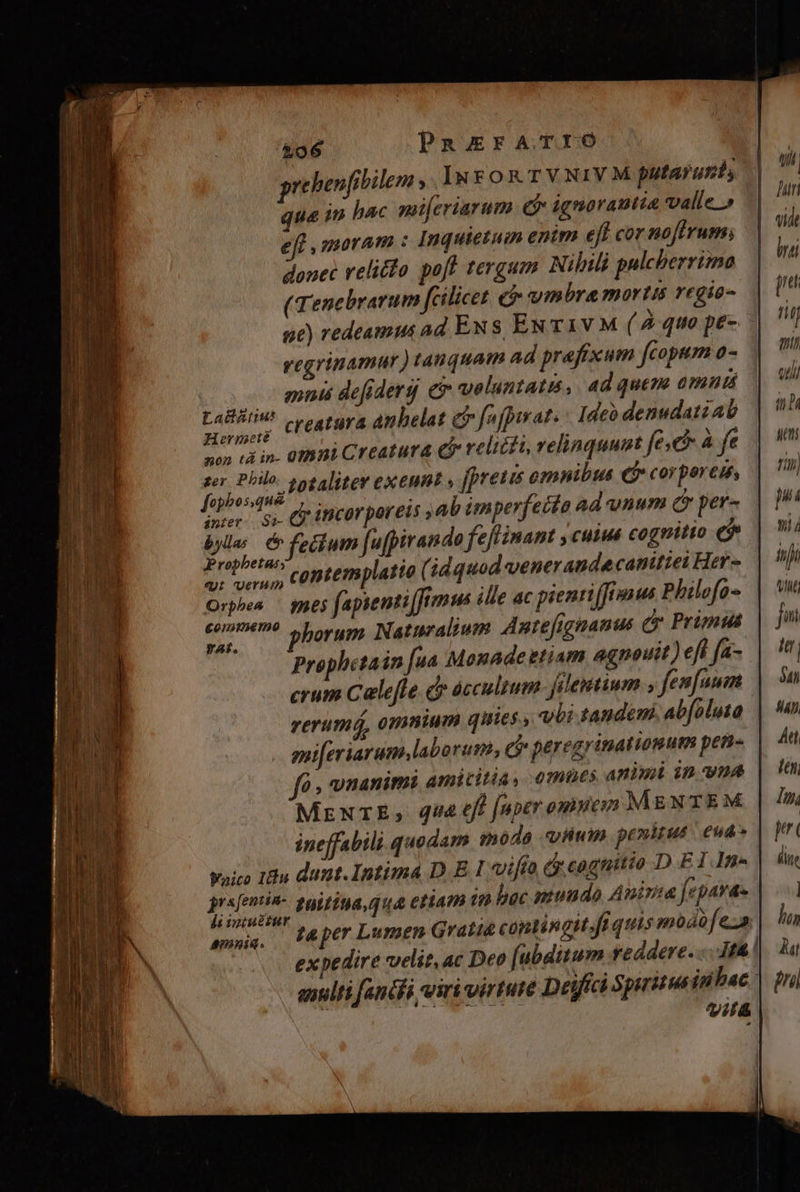 206 PRÆFATIO
prehensibilem, INFORTVNIVM putarunt,
quæ in hac miseriarum & ignorantiæ valle,
est, moram : Inquietum enim est cor nostrum,
donec relicto post tergum Nihili pulcherrimo
(Tenebrarum scilicet & vmbræ mortis regio-
ne) redeamus ad ENS ENTIVM (à quo pe-
regrinamur) tanquam ad præfixum scopum o-
mnis desiderij & voluntatis, ad quem omnis
creatura anhelat & suspirat. Ideò denudati ab
omni Creatura & relicti, relinquunt se, & à se
totaliter exeunt, spretis omnibus & corporeis,
& incorporeis, ab imperfecto ad vnum & per-
fectum suspirando festinant, cuius cognitio &
contemplatio (id quod veneranda canitiei Her-
mes sapientissimus ille ac pientissimus Philoso-
phorum Naturalium Antesignanus & Primus
Propheta in sua Monade etiam agnouit) est sa-
crum Cæleste & occultum silentium, sensuum
rerumq, omnium quies, vbi tandem absoluta
miseriarum, laborum, & peregrinationum pen-
so, vnanimi amicitia, omnes animi in vna
MENTE, quæ est super omnem MENTEM
ineffabili quodam modo vnum penitus eua-
dunt. Intima DEI visio & cognitio DEI In-
tuitiua, qua etiam in hoc mundo Anima separa-
ta per Lumen Gratiæ contingit, si quis modò se
expedire velit, ac Deo subditum reddere. Ita
multi sancti viri virtute Deifici Spiritus in hac
vita
Lactãtius
Hermetẽ
non tã in-
ter Philo
sophos, quã
inter Si-
byllas &
Prophetas,
vt verum
Orphea
commemo
rat.
Vnico Ictu
præsentia-
li intuẽtur
omnia.